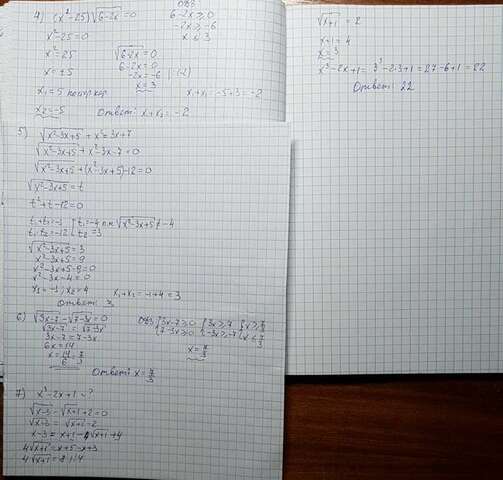 4) (x²-25)√6-2x = 0
ОДЗ
x²-25=0
6-2x ≥ 0
x²=25
√6-2x = 0
-2x ≥ -6
x = ±5
6-2x = 0
x ≤ 3
-2x = -6 | :(-2)
x = 3
x₁=5
x₂=-5
-5+3 = -2
Ответ: x+x₂ = -2
5) √x²-3x+5 + x² = 3x+7
√x²-3x+5 + x²-3x-7=0
√x²-3x+5 + (x²-3x+5)-12=0
√x²-3x+5 = t
t²+t-12=0
t₁+t₂=-1 | t₁=-4 п.к √x²-3x+5 ≠ -4
t₁·t₂=-12 | t₂=3
√x²-3x+5 = 3
x²-3x+5 = 9
x²-3x+5-9=0
x²-3x-4=0
x₁=-1; x₂=4
x₁+x₂ = -1+4 = 3
Ответ: 3
6) √3x-7 - √7-3x = 0
ОДЗ { 3x-7≥0 { 3x≥7 { x≥7/3
√3x-7 = √7-3x
{ 7-3x≥0 { -3x≥-7 { x≤7/3
3x-7 = 7-3x
6x=14
x = 7/3
x = 14/6 = 7/3
Ответ: x = 7/3
7) x³-2x+1 - ?
√x-3 - √x+1 + 2 = 0
√x-3 = √x+1 - 2
x-3 = x+1-4√x+1 + 4
4√x+1 = x+5-x+3
4√x+1 = 8 | :4
√x+1 = 2
x+1 = 4
x = 3
x³-2x+1 = 3³-2·3+1 = 27-6+1 = 22
Ответ: 22